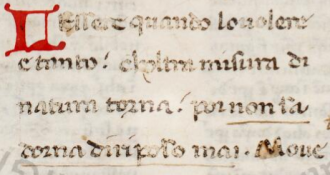 Ellè quando lo volere
è tanto: ch oltra misura di
natura torna: poi non sa
dorna di riposo mai. Move